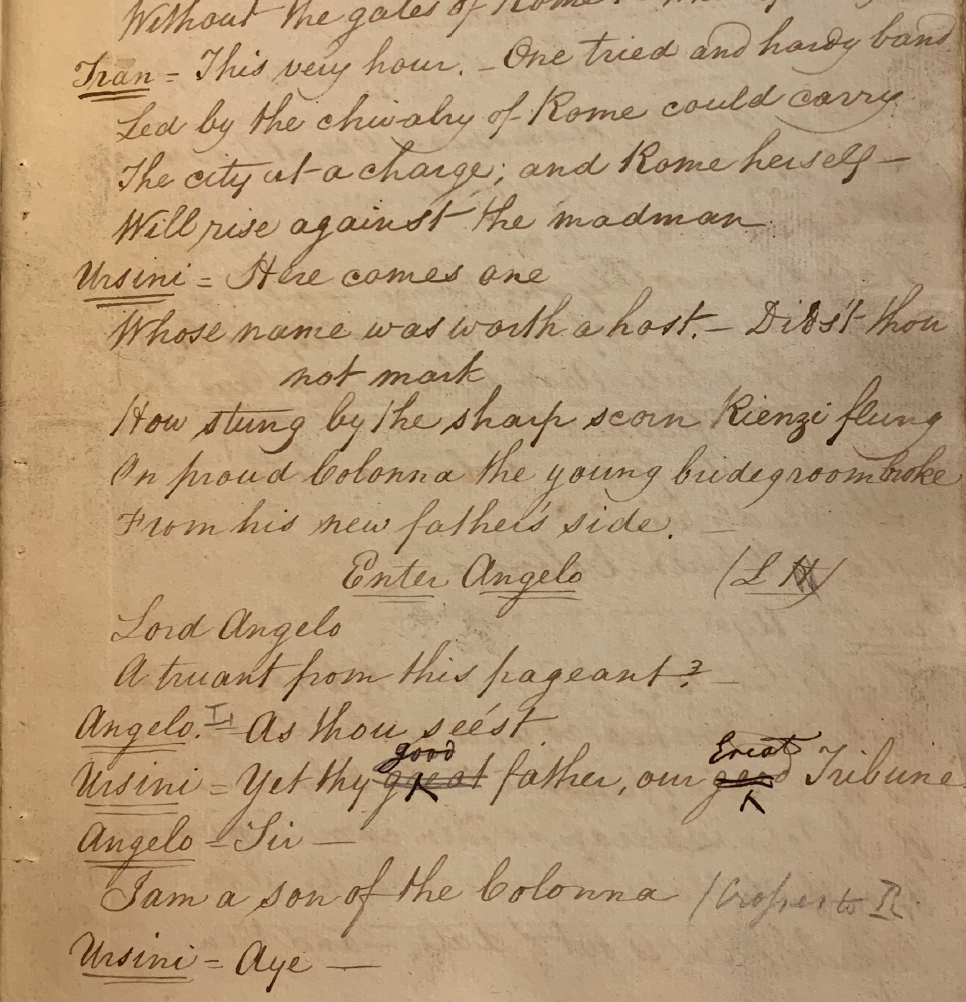 Without the gates of Rome
Fran = This very hour. – One tried and hardy band
Led by the chivalry of Rome could carry
The city at a charge; and Rome herself –
Will rise against the madman
Ursini = Here comes one
Whose name was worth a host. – Dids't thou
not mark
How stung by the sharp scorn Rienzi flung
On proud Colonna the young bridegroom broke
From his new father's side. –
Enter Angelo (L H)
Lord Angelo
A truant from this pageant? –
Angelo. L = As thou see'st
good Great
Ursini = Yet thy great father, our good Tribune
Angelo = Sir –
I am a son of the Colonna (Crosses to R.
Ursini = Aye –